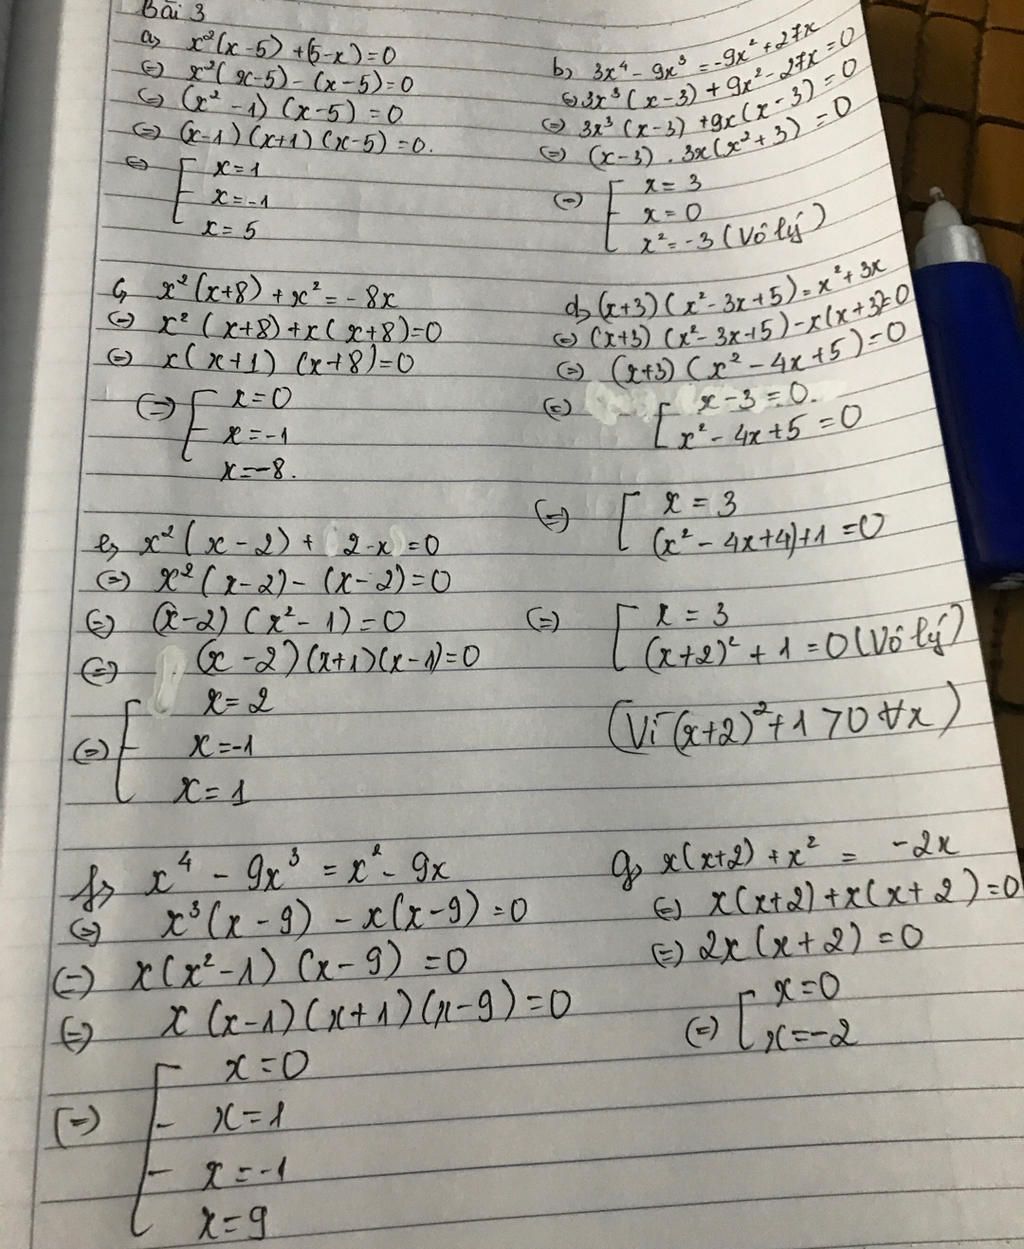 Bài 3
a, x²(x-5) + (5-x) = 0
(=) x²(x-5) - (x-5) = 0
(=) (x² - 1) (x-5) = 0
(=) (x-1) (x+1) (x-5) = 0.
(=) [ x = 1
x = -1
x = 5
b, 3x⁴ - 9x³ = -9x² + 27x
(=) 3x³ (x-3) + 9x² - 27x = 0
(=) 3x³ (x-3) + 9x (x-3) = 0
(=) (x-3) . 3x (x² + 3) = 0
(=) [ x = 3
x = 0
x² = -3 (Vô lý)
c, x² (x+8) + x² = -8x
(=) x² (x+8) + x (x+8) = 0
(=) x (x+1) (x+8) = 0
(=) [ x = 0
x = -1
x = -8.
d, (x+3) (x² - 3x + 5) = x² + 3x
(=) (x+3) (x² - 3x + 5) - x (x+3) = 0
(=) (x+3) (x² - 4x + 5) = 0
(=) [ x - 3 = 0.
x² - 4x + 5 = 0
(=) [ x = 3
(x² - 4x + 4) + 1 = 0
(=) [ x = 3
(x+2)² + 1 = 0 (Vô lý)
(Vì (x+2)² + 1 > 0 ∀x)
e, x² (x - 2) + (2-x) = 0
(=) x² (x-2) - (x-2) = 0
(=) (x-2) (x² - 1) = 0
(=) (x-2) (x+1) (x-1) = 0
(=) [ x = 2
x = -1
x = 1
f, x⁴ - 9x³ = x² - 9x
(=) x³ (x - 9) - x (x-9) = 0
(=) x (x² - 1) (x - 9) = 0
(=) x (x-1) (x+1) (x-9) = 0
(=) [ x = 0
x = 1
x = -1
x = 9
g, x(x+2) + x² = -2x
(=) x(x+2) + x(x+2) = 0
(=) 2x (x+2) = 0
(=) [ x = 0
x = -2